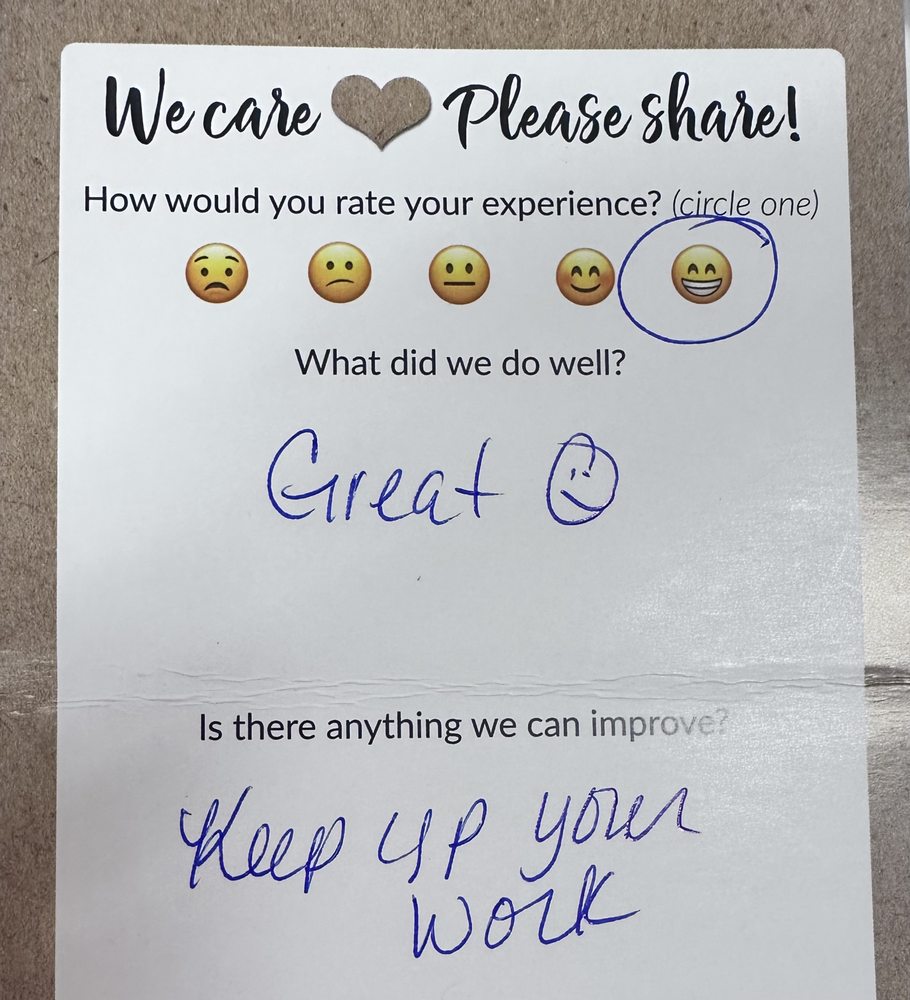 We care Please share!
How would you rate your experience? (circle one)
What did we do well?
Great
Is there anything we can improve?
Keep up your
work